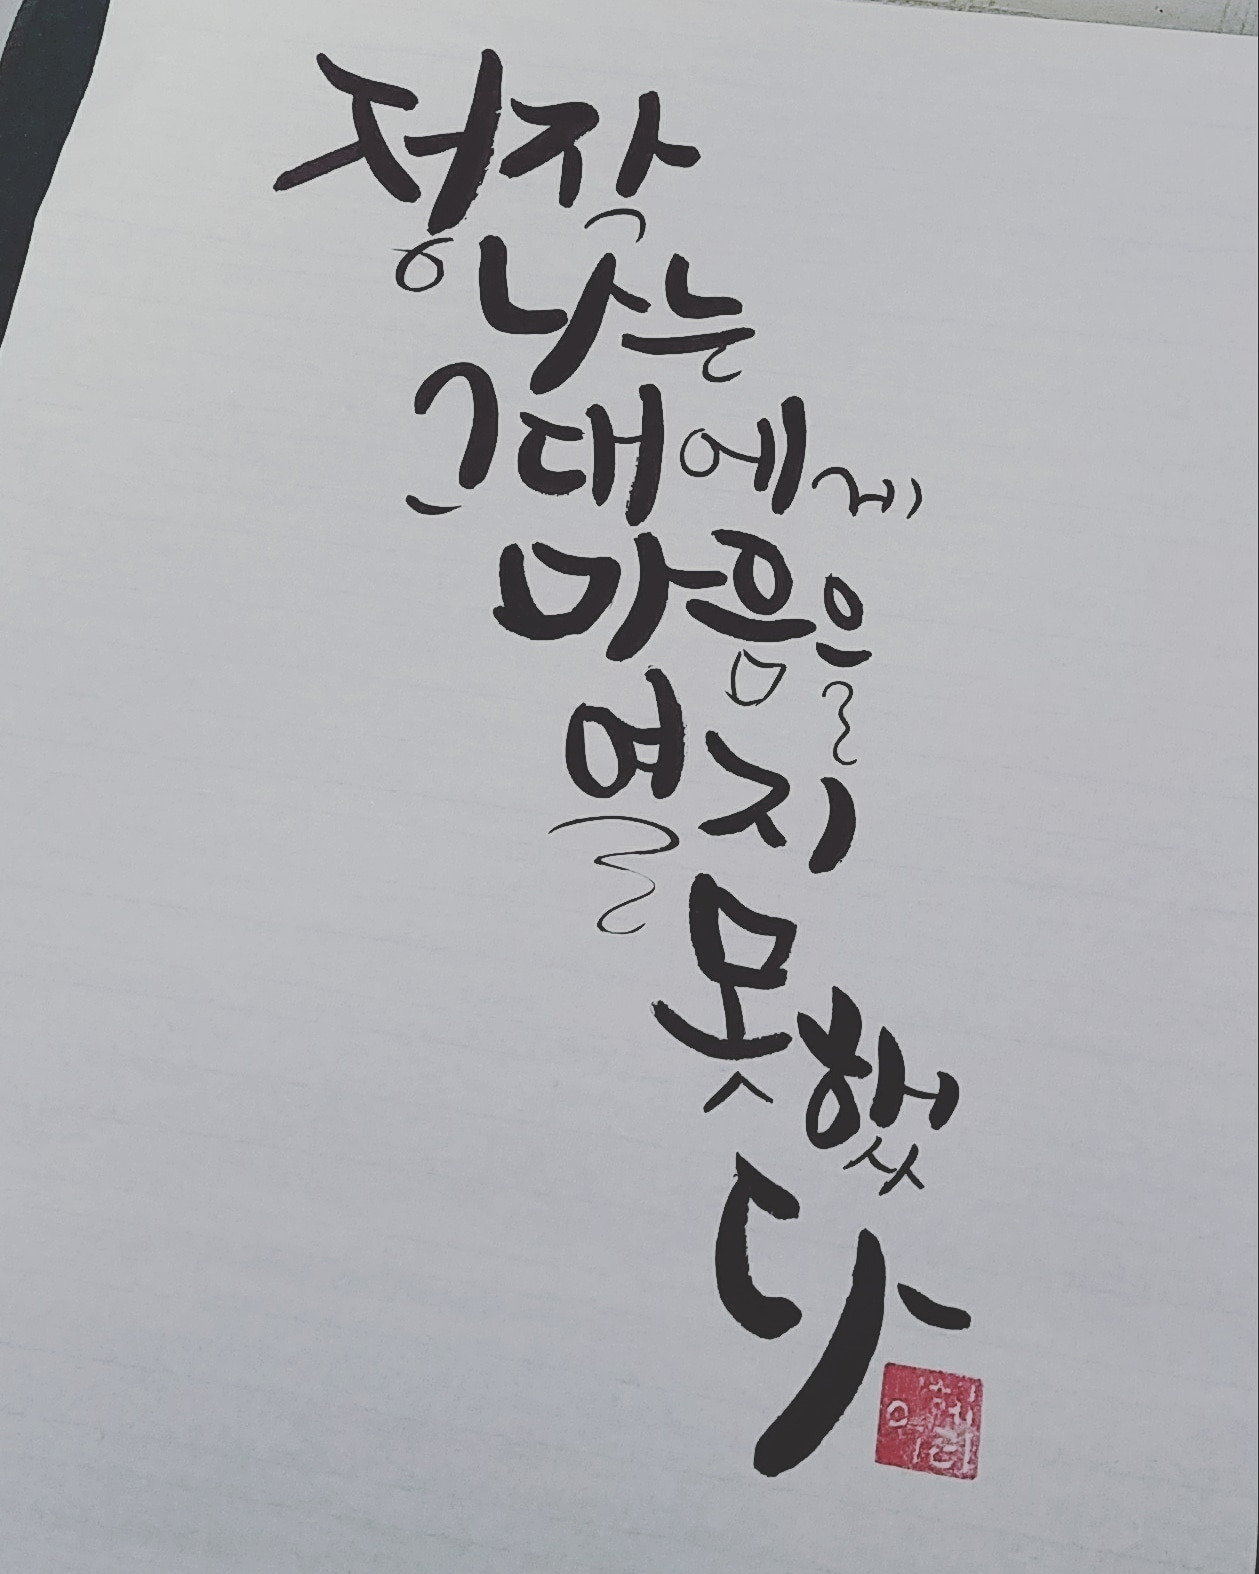 정작
나는
그대에게
마음을
열지
못했
다